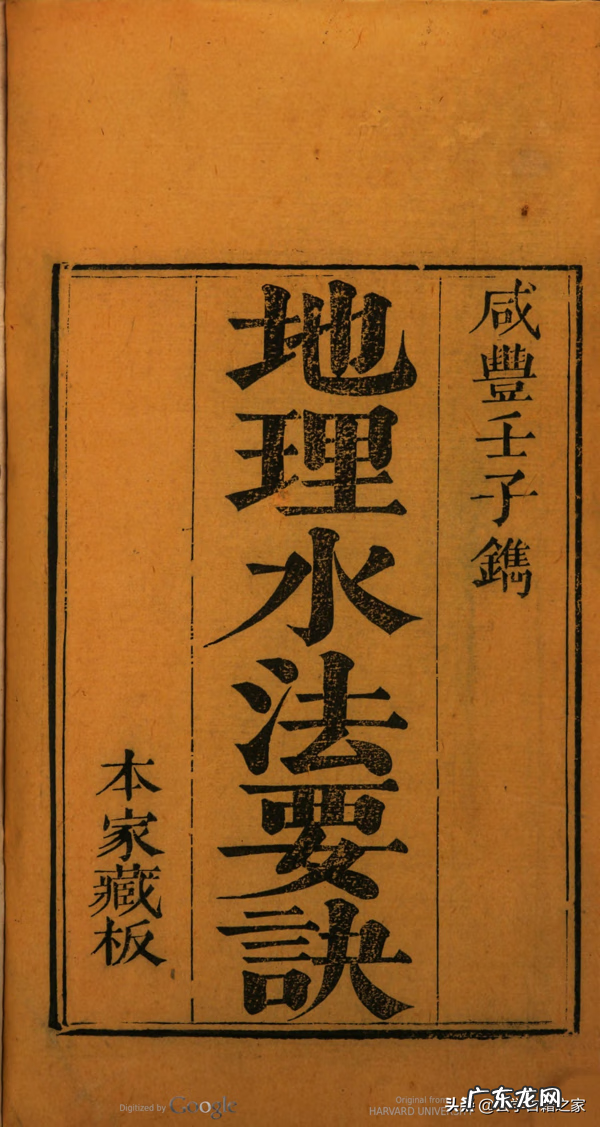 咸豐壬子鐫
地理水法要訣
本家藏板
Digitized by Google
Original from
HARVARD UNIVERSITY
广东龙网
头条 @
之家